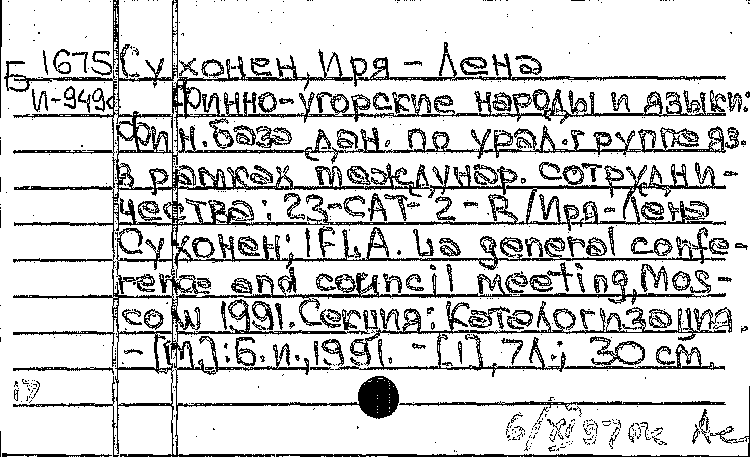 Б 1675 Сухонен, Иря - Лена
И-949 Финно-угорские народы и языки:
Фин. база дан. по урал. группе яз.
в рамках междунар. сотрудни-
чества: 23-CAT-2-R/Иря-Лена
Сухонен; IFLA. La general confe-
rence and council meeting, Mos-
cow 1991. Секция: Каталогизация.
- [М.]: Б. и., 1991. - [1], 7 л.; 30 см.
17
6/XI 97